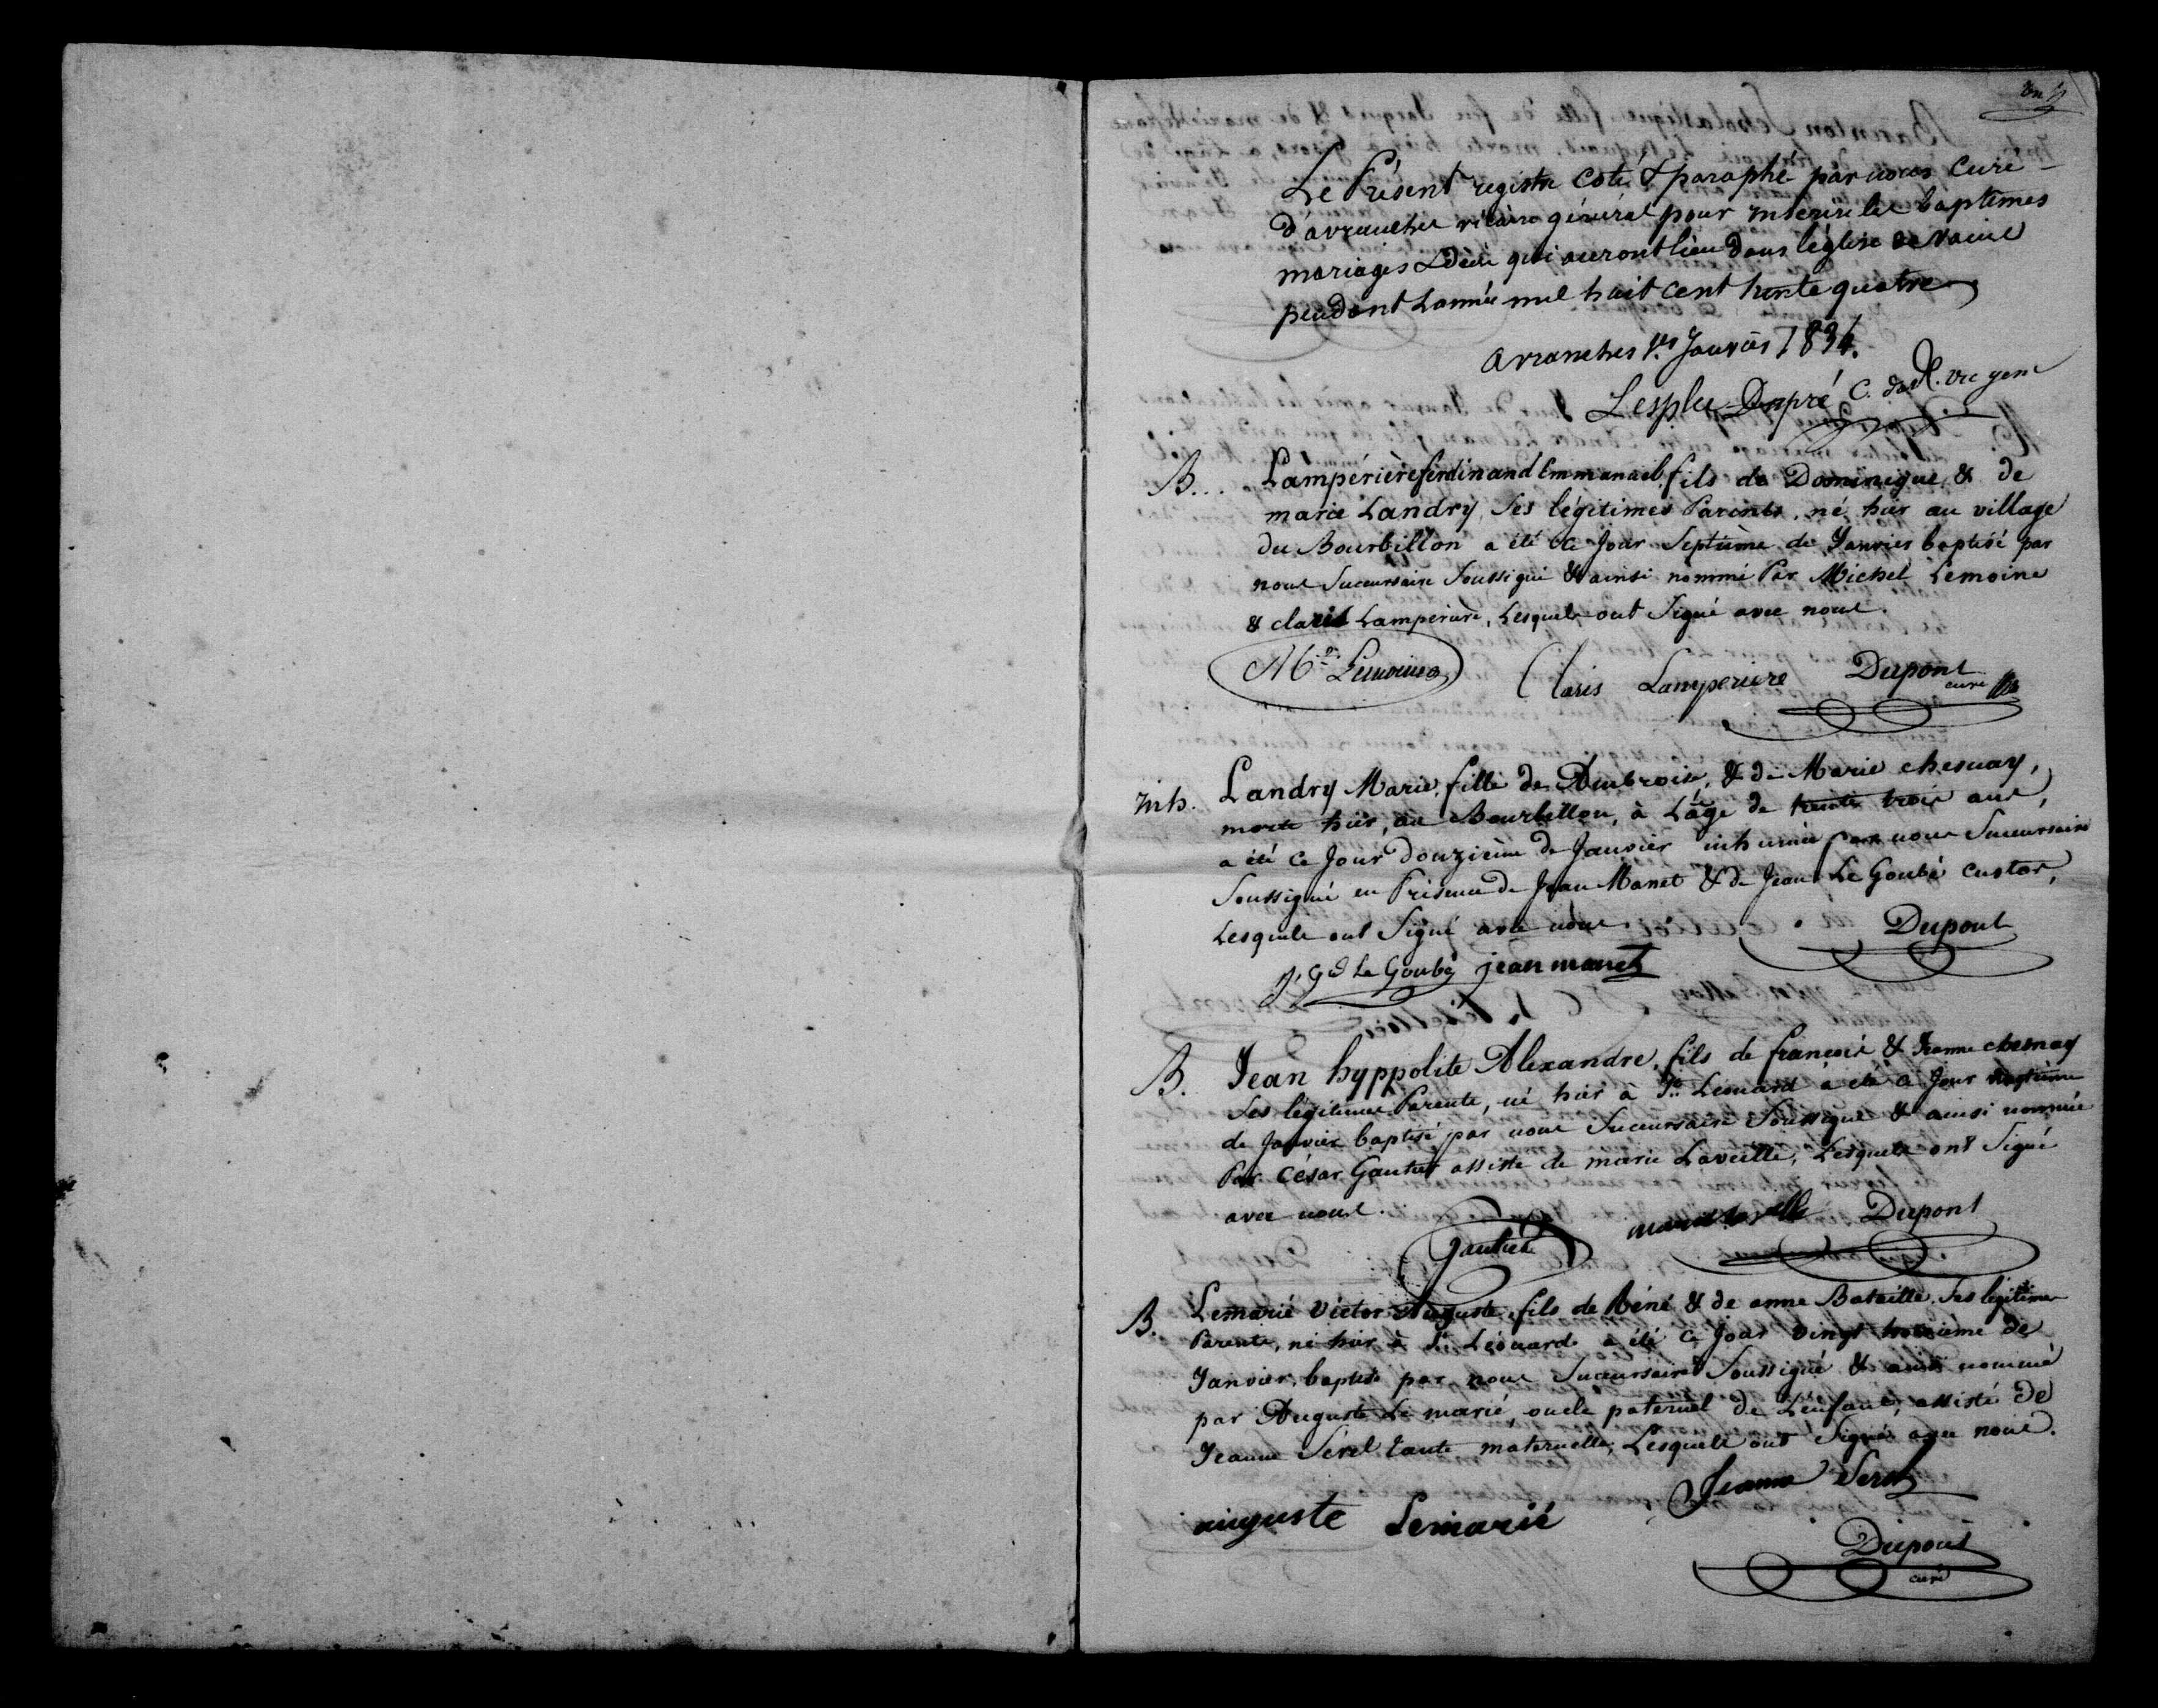 Le Présent registre coté & paraphé par nous Curé
d'avranches vicaire général pour inscrire les baptêmes
mariages & décès qui auront lieu dans l'église de vains
pendant l'année mil huit cent trente quatre
avranches 1er Janvier 1834.
Lesplu-Dupré C. d'a. vic gen
B... Lampérière ferdinand Emmanuel, fils de Dominique, & de
marie Landry, ses légitimes Parents, né hier au village
du Bourbillon a été ce Jour Septième de Janvier baptisé par
nous Succursaire Soussigné & ainsi nommé Par Michel Lemoine
& claris Lamperiere, Lesquels ont Signé avec nous.
Lemoine Claris Lamperiere Dupont
curé
inh. Landry Marie, fille de Ambroise, & de Marie chesnay,
morte hier, au Bourbillon, à L'âge de trente trois ans,
a été ce Jour douzième de Janvier inhumée par nous Succursaire
Soussigné en Présence de Jean Manet & de Jean Le Goubé custos,
Lesquels ont Signé avec nous. Dupont
Le Goubé jean manet
B. Jean hyppolite Alexandre, fils de francois & Jeanne chesnay
Ses légitimes Parents, né hier à St. Léonard a été ce Jour
de Janvier baptisé par nous Succursaire Soussigné & ainsi nommé
Par César Gautier assisté de marie Laveille, Lesquels ont Signé
avec nous.
Gautier marie laveille Dupont
B. Lemarié Victor Auguste, fils de Réné & de anne Bataille, Ses légitimes
Parents, né hier à St. Léonard a été ce Jour vingt troisième de
Janvier, baptisé par nous Succursaire Soussigné & ainsi nommé
par Auguste Le marié, oncle paternel de L'enfant, assisté de
Jeanne Sérel tante maternelle, Lesquels ont Signé avec nous.
Jeanne Serel
auguste Lemarié
Dupont
curé